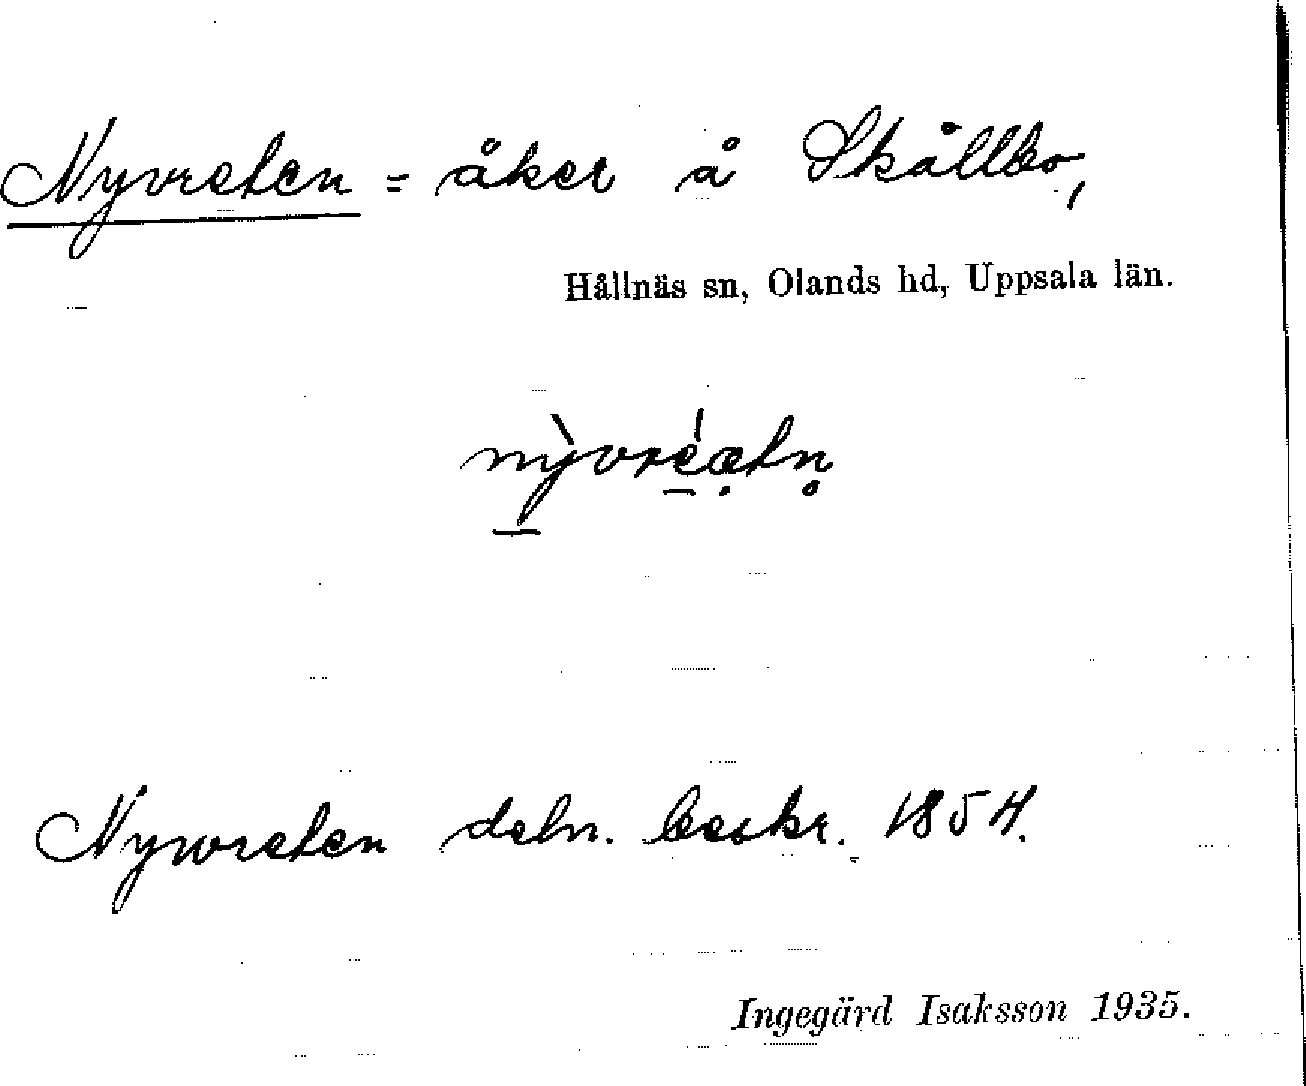 Nyvreten = åker å Skållbo,
Hållnäs sn, Olands hd, Uppsala län.
nỳvréætn̥
Nywreten deln. beskr. 1854.
Ingegärd Isaksson 1935.